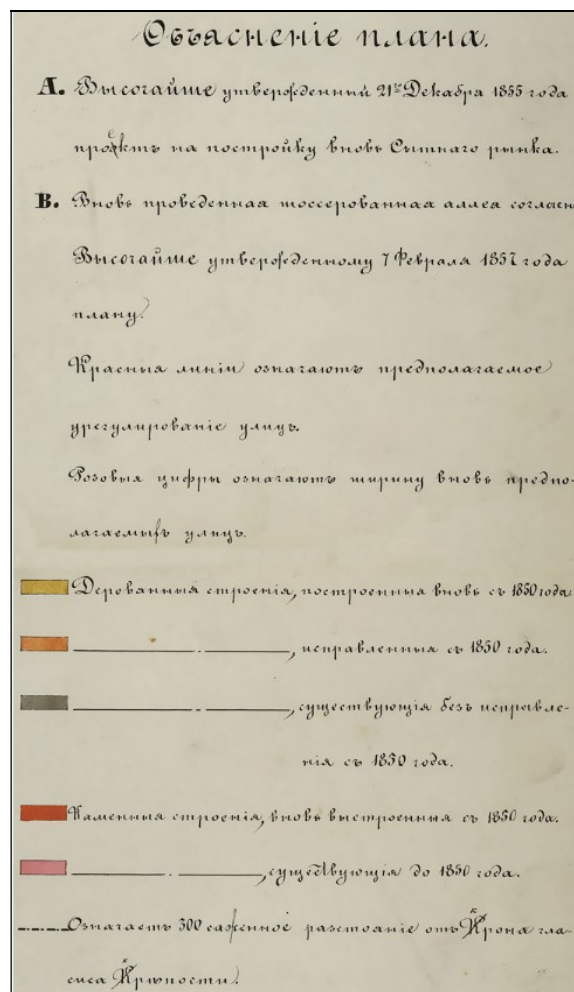 Объясненіе плана.
А. Высочайше утвержденный 21го Декабря 1855 года
проэктъ на постройку вновь Сытнаго рынка.
В. Вновь проведенная шоссерованная аллея согласн
Высочайше утвержденному 7 Февраля 1857 года
плану.
Красныя линіи означаютъ предполагаемое
урегулированіе улицъ.
Розовыя цифры означаютъ ширину вновь предпо-
лагаемыхъ улицъ.
Дерованныя строенія, построенныя вновь съ 1850 года.
, исправленныя съ 1850 года.
, существующія безъ исправле-
нія съ 1850 года.
Каменныя строенія, вновь выстроенныя съ 1850 года.
, существующія до 1850 года.
Означаетъ 300 саженное разстояніе отъ Крона гла-
сиса Крѣпости.